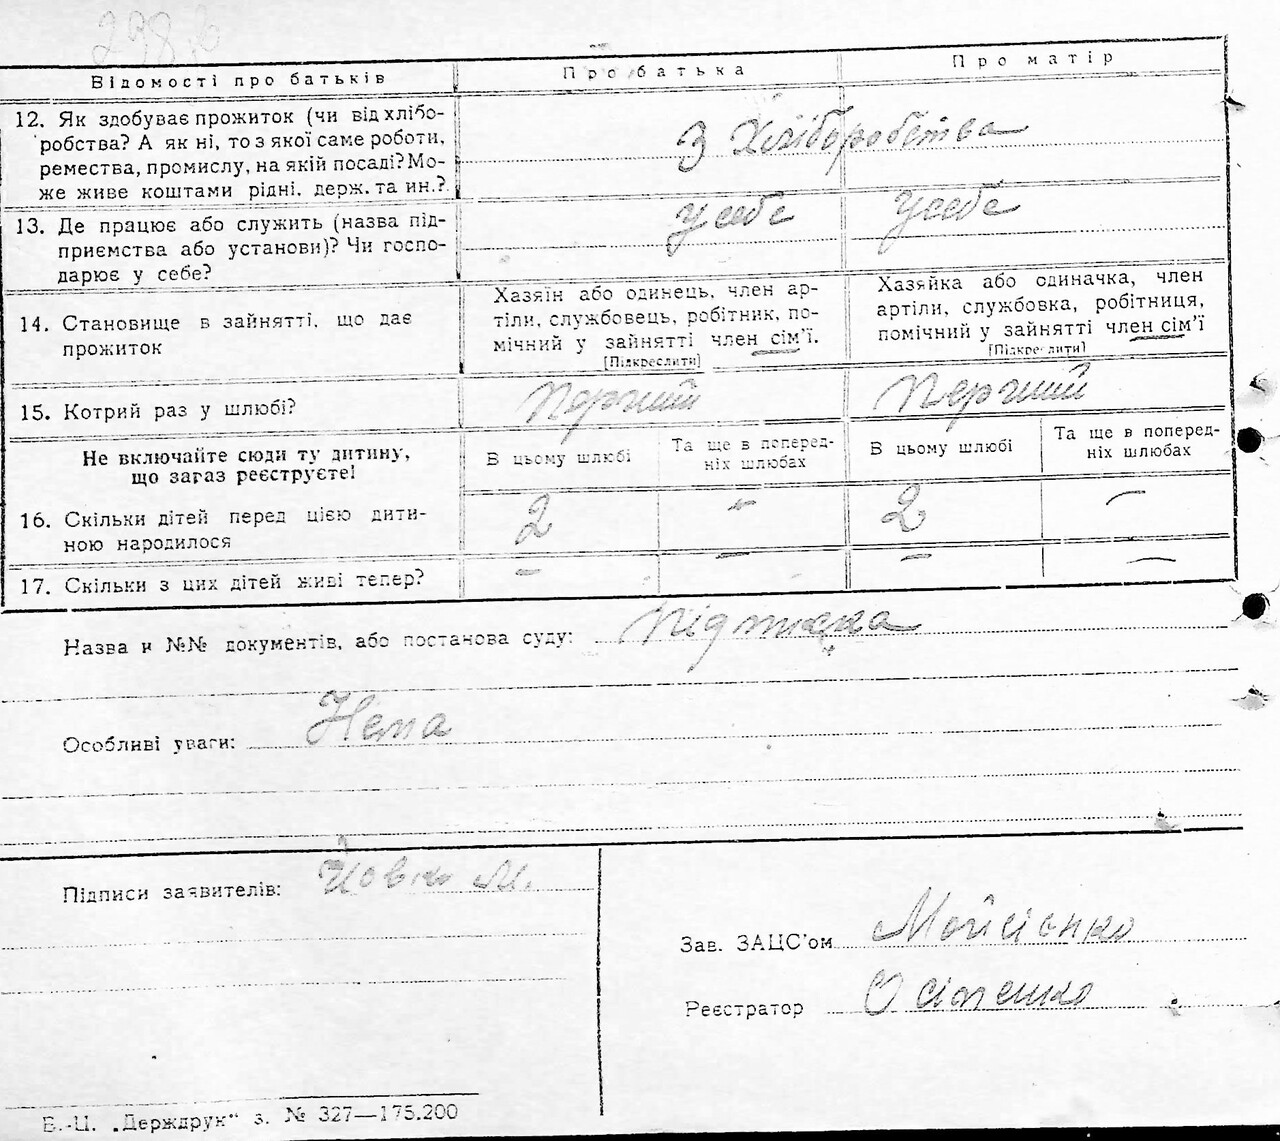 298
Відомості про батьків
Про батька
Про матір
12. Як здобуває прожиток (чи від хлібо-
робства? А як ні, то з якої саме роботи,
ремества, промислу, на якій посаді? Мо-
же живе коштами рідні, держ. та ин.?
З Хліборобства
13. Де працює або служить (назва під-
приємства або установи)? Чи госпо-
дарює у себе?
У себе
У себе
14. Становище в зайнятті, що дає
прожиток
Хазяїн або одинець, член ар-
тіли, службовець, робітник, по-
мічний у зайнятті член сім’ї.
[Підкреслити]
Хазяйка або одиначка, член
артіли, службовка, робітниця,
помічний у зайнятті член сім’ї
[Підкреслити]
15. Котрий раз у шлюбі?
Перший
Перший
Не включайте сюди ту дитину,
що зараз реєструєте!
В цьому шлюбі
Та ще в поперед-
ніх шлюбах
В цьому шлюбі
Та ще в поперед-
ніх шлюбах
16. Скільки дітей перед цією дити-
ною народилося
2
–
2
–
17. Скільки з цих дітей живі тепер?
–
–
–
–
Назва и №№ документів, або постанова суду:
Особливі уваги: Нема
Підписи заявителів: М.
Зав. ЗАЦС’ом Мойсіэнко
Реєстратор Осіпенко
В.-Ц. „Держдрук“ з. № 327—175.200